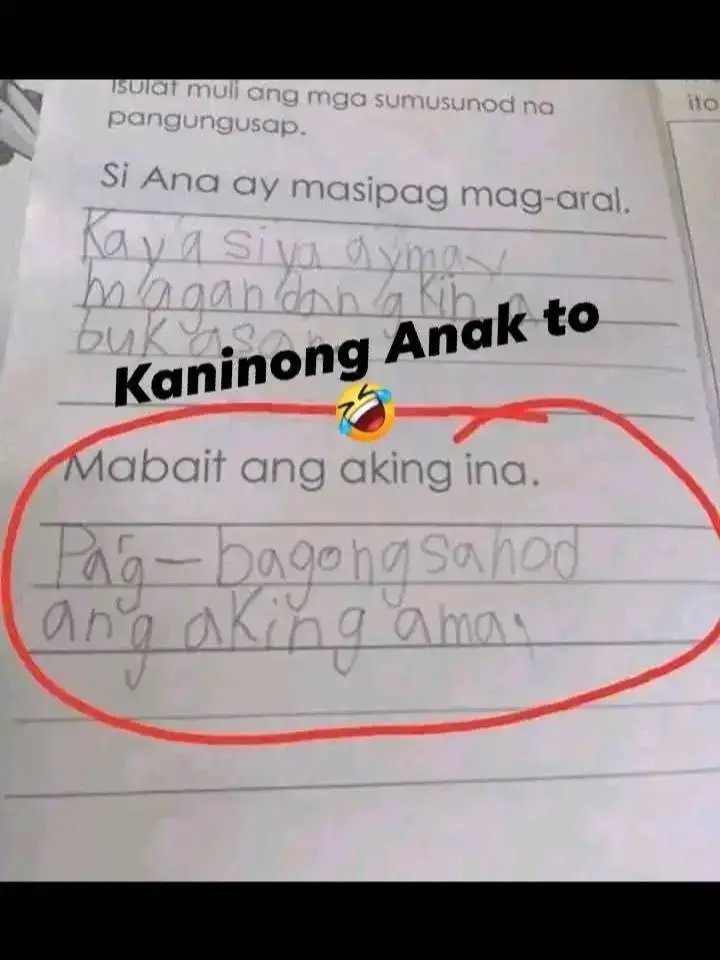 Isulat muli ang mga sumusunod na
ito
pangungusap.
Si Ana ay masipag mag-aral.
Kaya siya aymay
magandang kin a
bukasan
Kaninong Anak to
Mabait ang aking ina.
Pag-bagong sahod
ang aking ama,